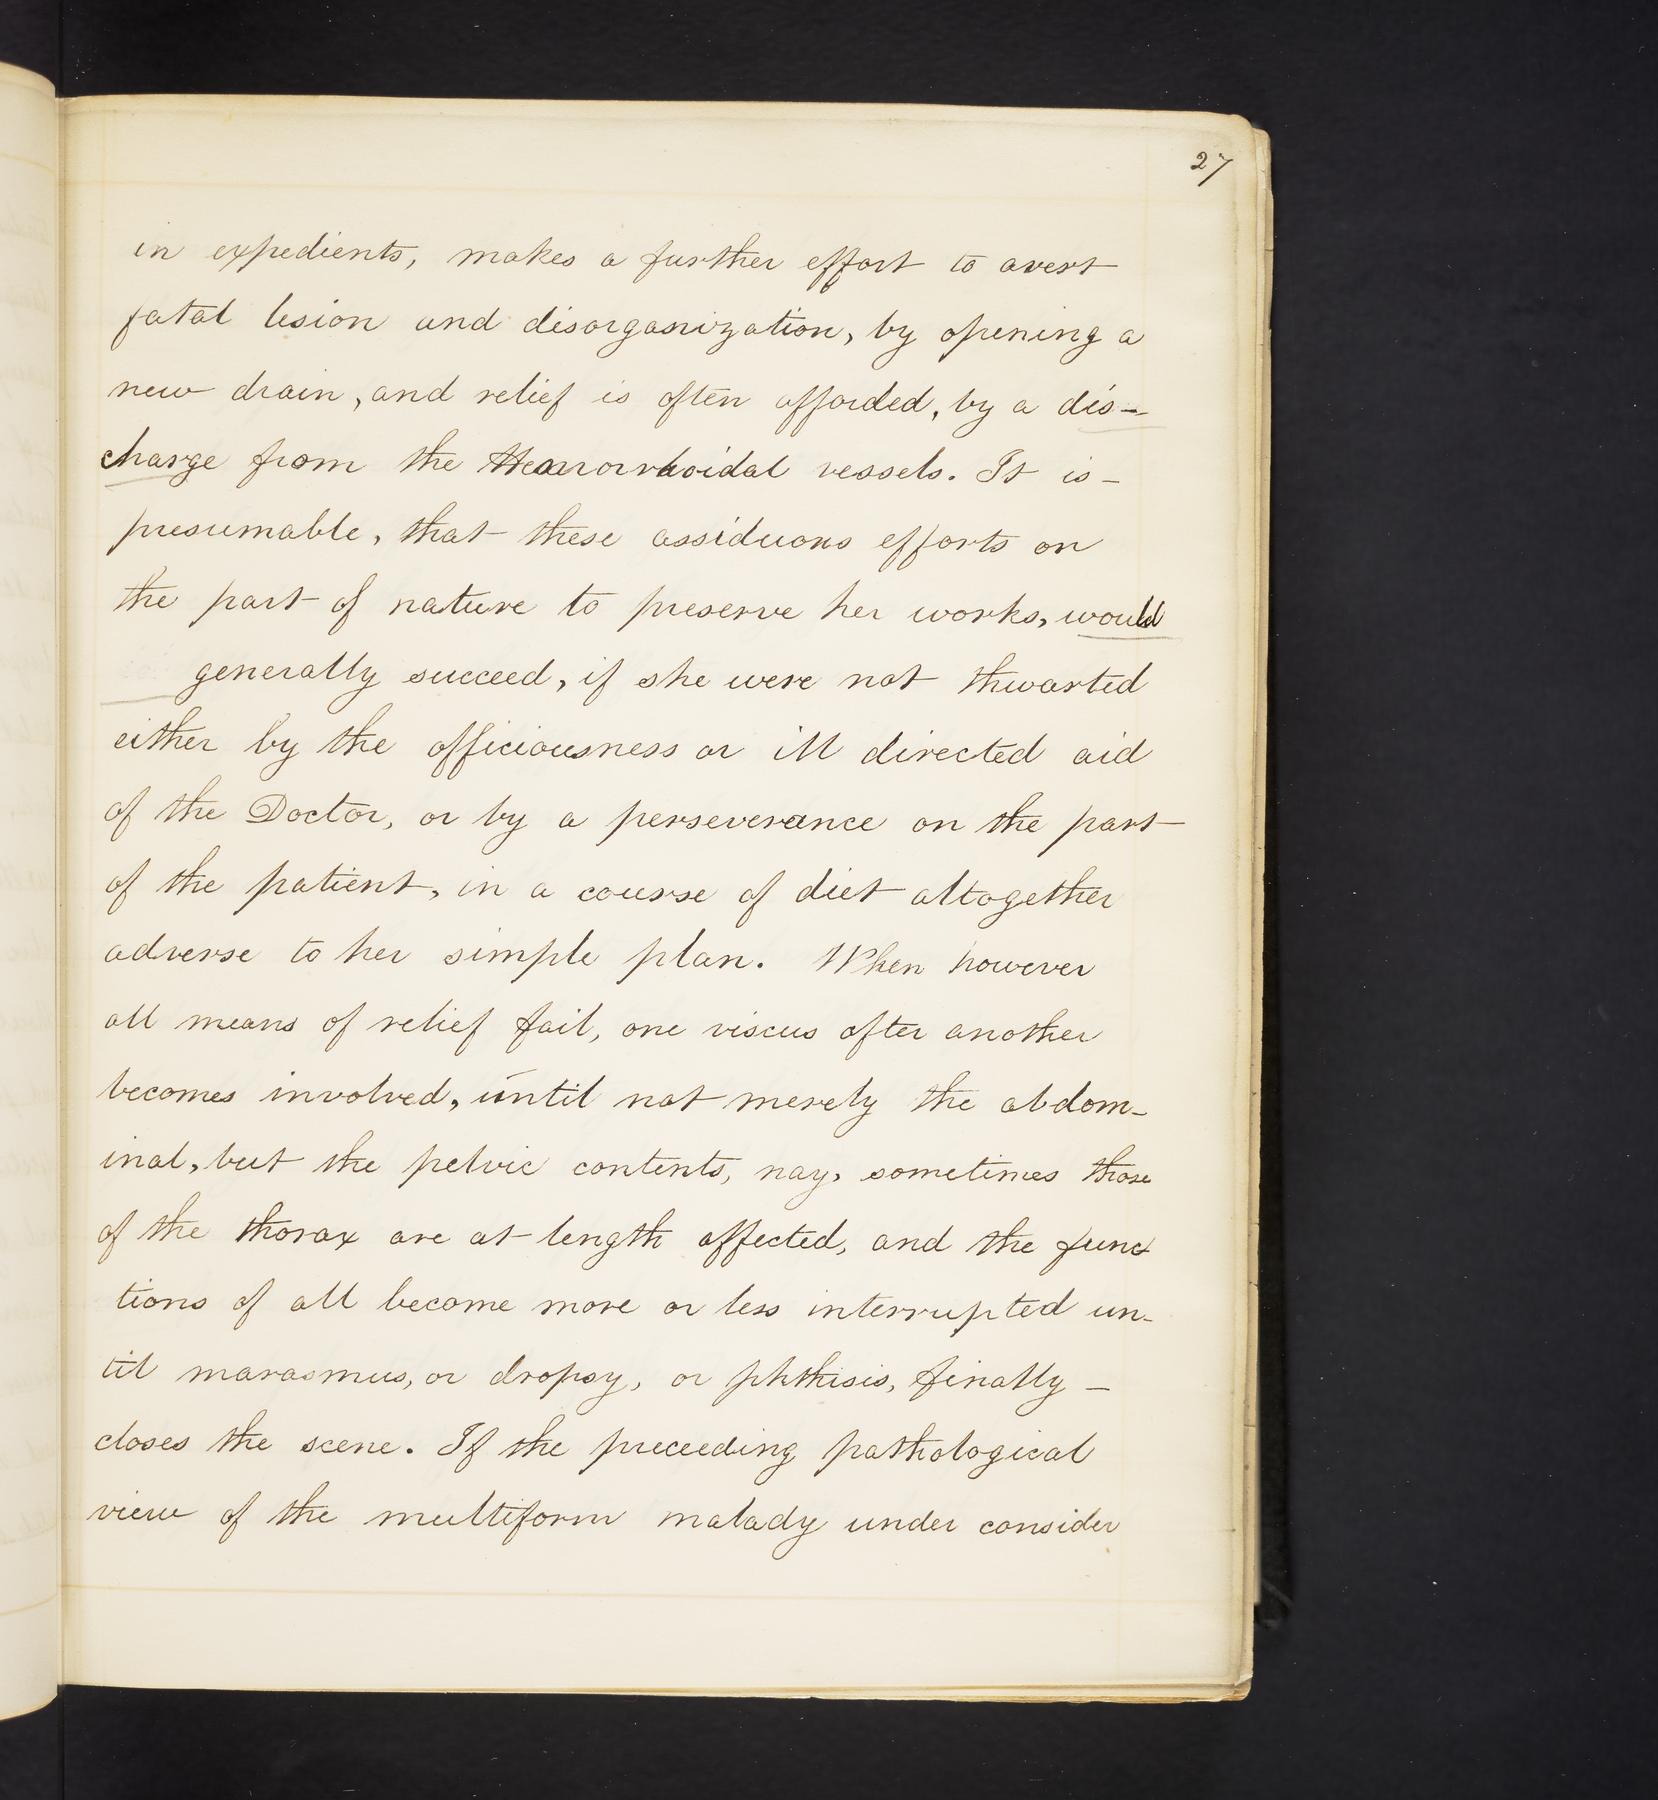 27
in expedients, makes a further effort to avert
fatal lesion and disorganization, by opening a
new drain, and relief is often afforded, by a dis-
charge from the vessels. It is -
presumable, that these assiduous efforts on
the part of nature to preserve her works, would
generally succeed, if she were not thwarted
either by the officiousness or ill directed aid
of the Doctor, or by a perseverance on the part
of the patient, in a course of diet altogether
adverse to her simple plan. When however
all means of relief fail, one viscus after another
becomes involved, until not merely the abdom-
inal, but the pelvic contents, nay, sometimes those
of the thorax are at length affected, and the func
tions of all become more or less interrupted un-
til marasmus, or dropsy, or phthisis, finally -
closes the scene. If the preceeding pathological
view of the multiform malady under consider